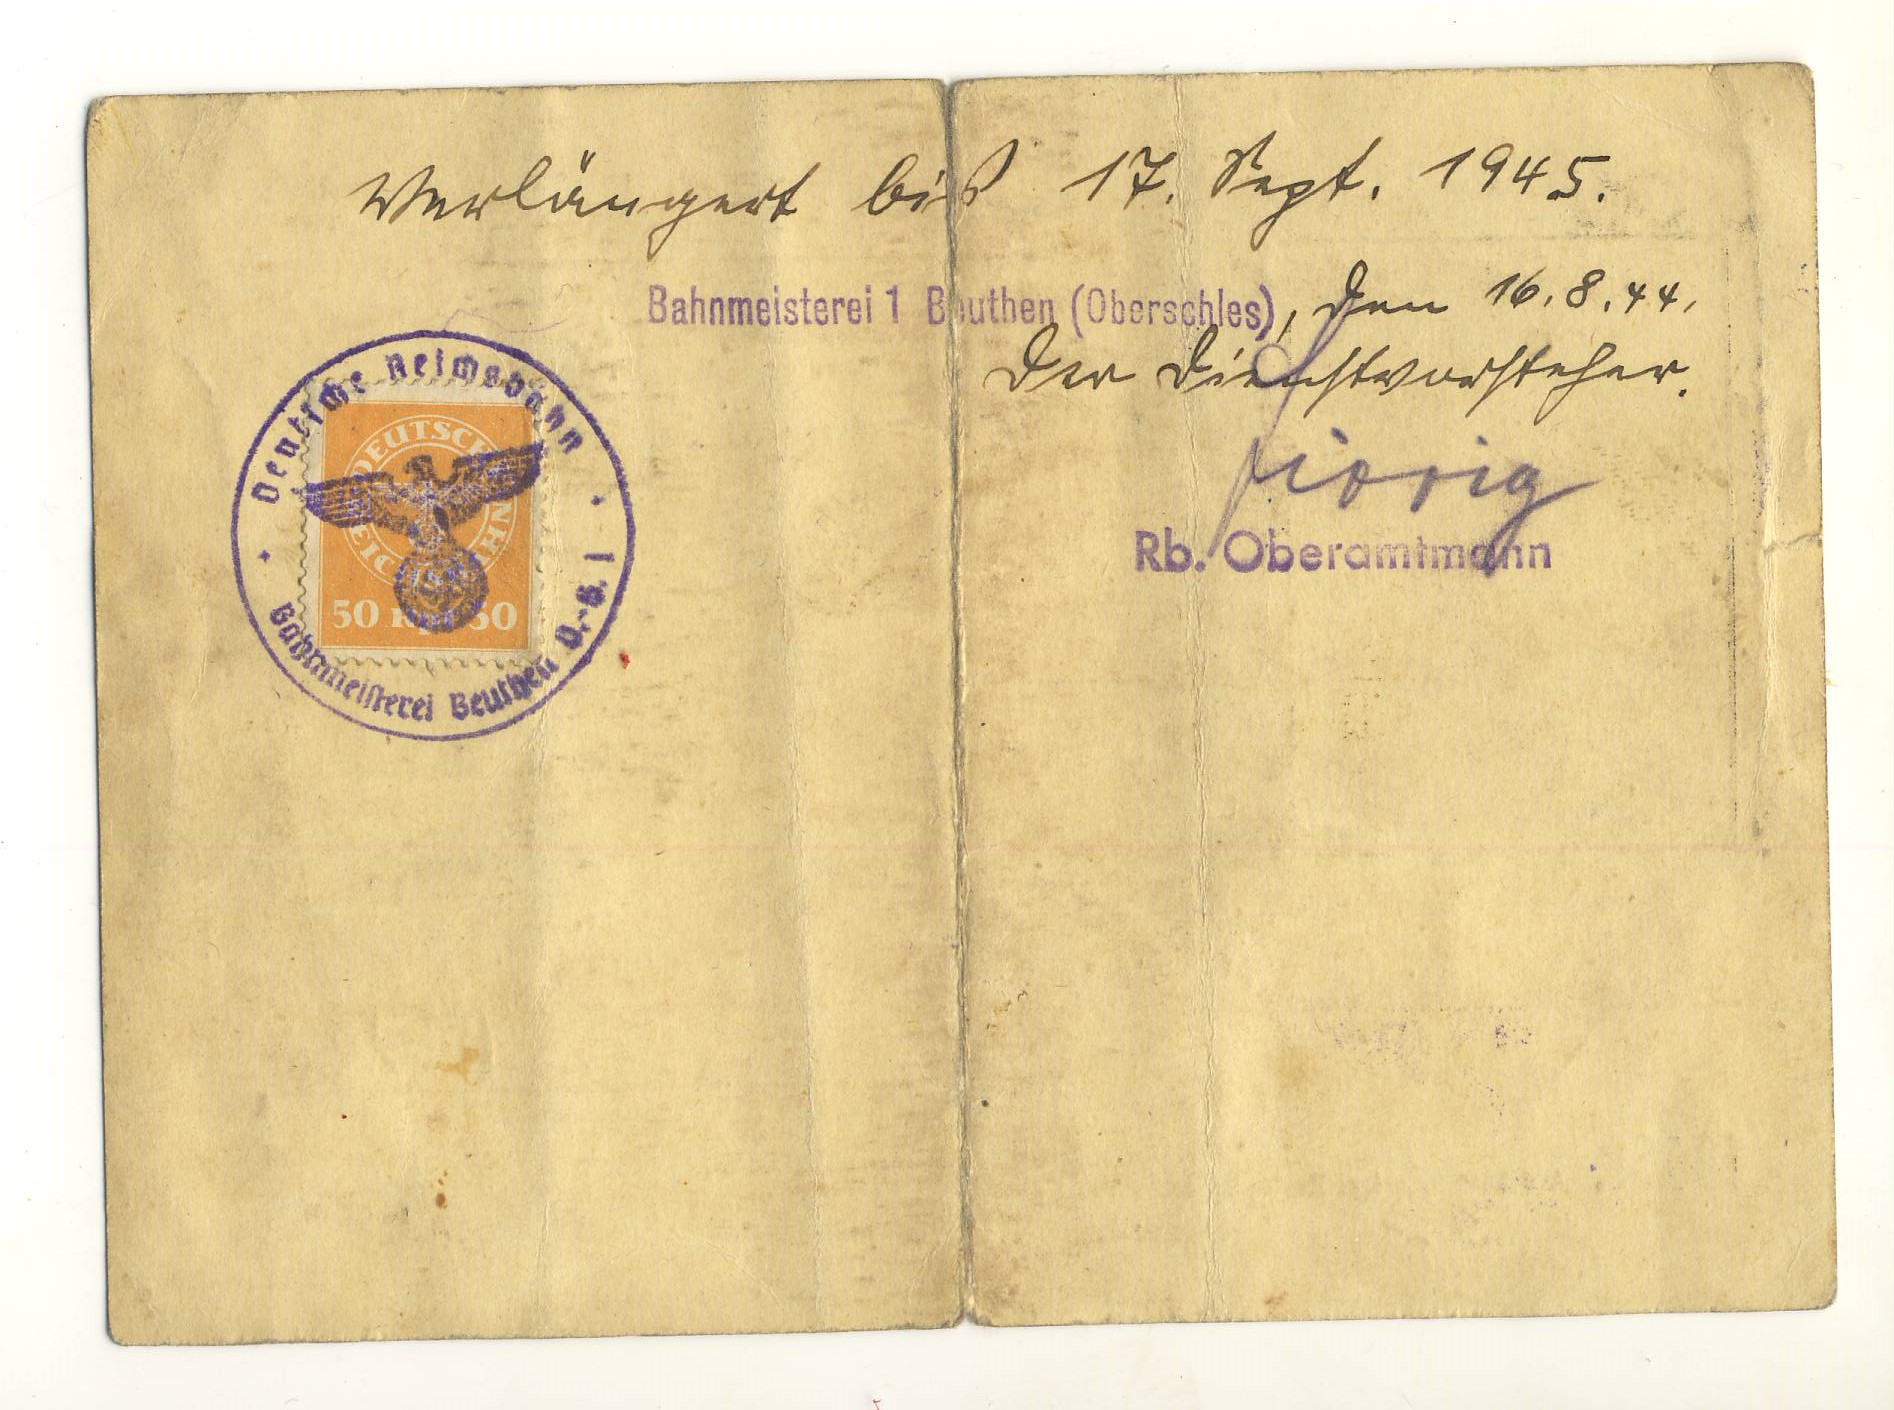 Verlängert bis 17. Sept. 1945.
Bahnmeisterei 1 Beuthen (Oberschles), den 16.8.44.
Der Dienstvorsteher.
Rb. Oberamtmann
Deutsche Reichsbahn
Bahnmeisterei Beuthen O.-S. 1
DEUTSCHE
REICHSBAHN
50 Rpf 50